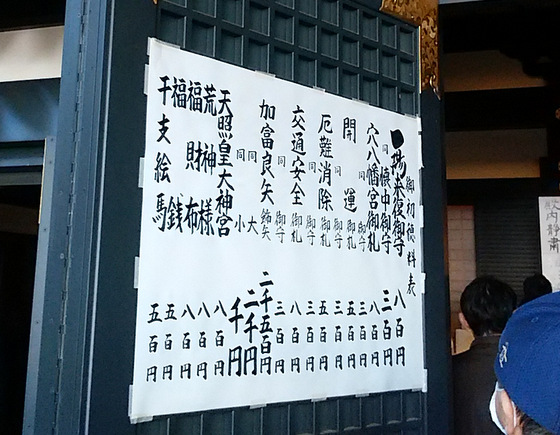 御初穂料表
一陽来復御守 八百円
同 懐中御守 三百円
穴八幡宮御札 八百円
同 御守 三百円
開運 御札 五百円
同 御守 三百円
厄難消除 御札 五百円
同 御守 三百円
交通安全 御札 八百円
同 御守 三百円
加富良矢 二千五百円
同 大 二千円
同 小 千円
天照皇大神宮 八百円
荒神様 八百円
福財布 八百円
福銭 五百円
干支絵馬 五百円
静粛